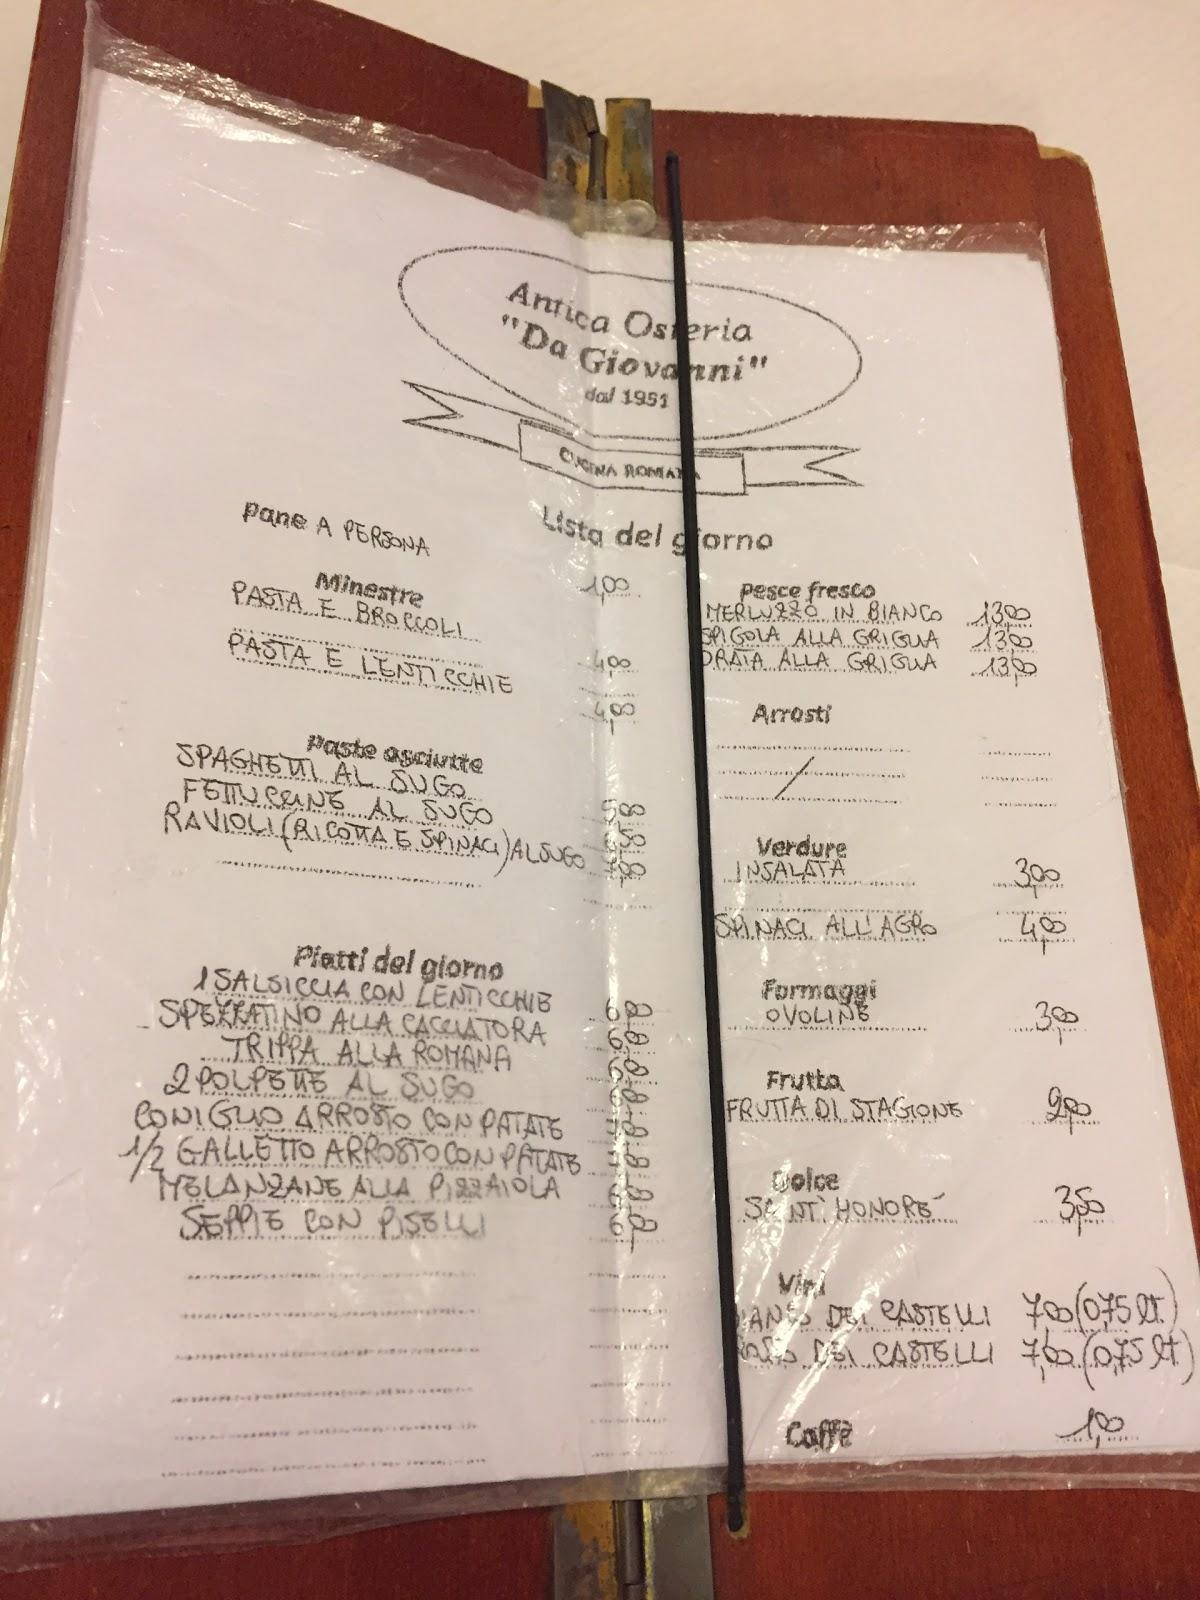 Antica Osteria
"Da Giovanni"
dal 1951
CUCINA ROMANA
Lista del giorno
Pane A PERSONA 1,00
Minestre
PASTA E BROCCOLI 4,00
PASTA E LENTICCHIE 4,00
Paste asciutte
SPAGHETTI AL SUGO 5,00
FETTUCCINE AL SUGO 5,50
RAVIOLI (RICOTTA E SPINACI) AL SUGO 7,00
Piatti del giorno
1 SALSICCIA CON LENTICCHIE 6,00
SPEZZATINO ALLA CACCIATORA 6,00
TRIPPA ALLA ROMANA 6,00
2 POLPETTE AL SUGO 6,00
CONIGLIO ARROSTO CON PATATE 7,00
1/2 GALLETTO ARROSTO CON PATATE 7,00
MELANZANE ALLA PIZZAIOLA 6,00
SEPPIE CON PISELLI 6,00
Pesce fresco
MERLUZZO IN BIANCO 13,00
SPIGOLA ALLA GRIGLIA 13,00
ORATA ALLA GRIGLIA 13,00
Arrosti
/
Verdure
INSALATA 3,00
SPINACI ALL'AGRO 4,00
Formaggi
OVOLINE 3,00
Frutta
FRUTTA DI STAGIONE 2,00
Dolce
SAINT HONORÉ 3,50
Vini
BIANCO DEI CASTELLI 7,00 (0,75 lt.)
ROSSO DEI CASTELLI 7,00 (0,75 lt)
Caffè 1,00